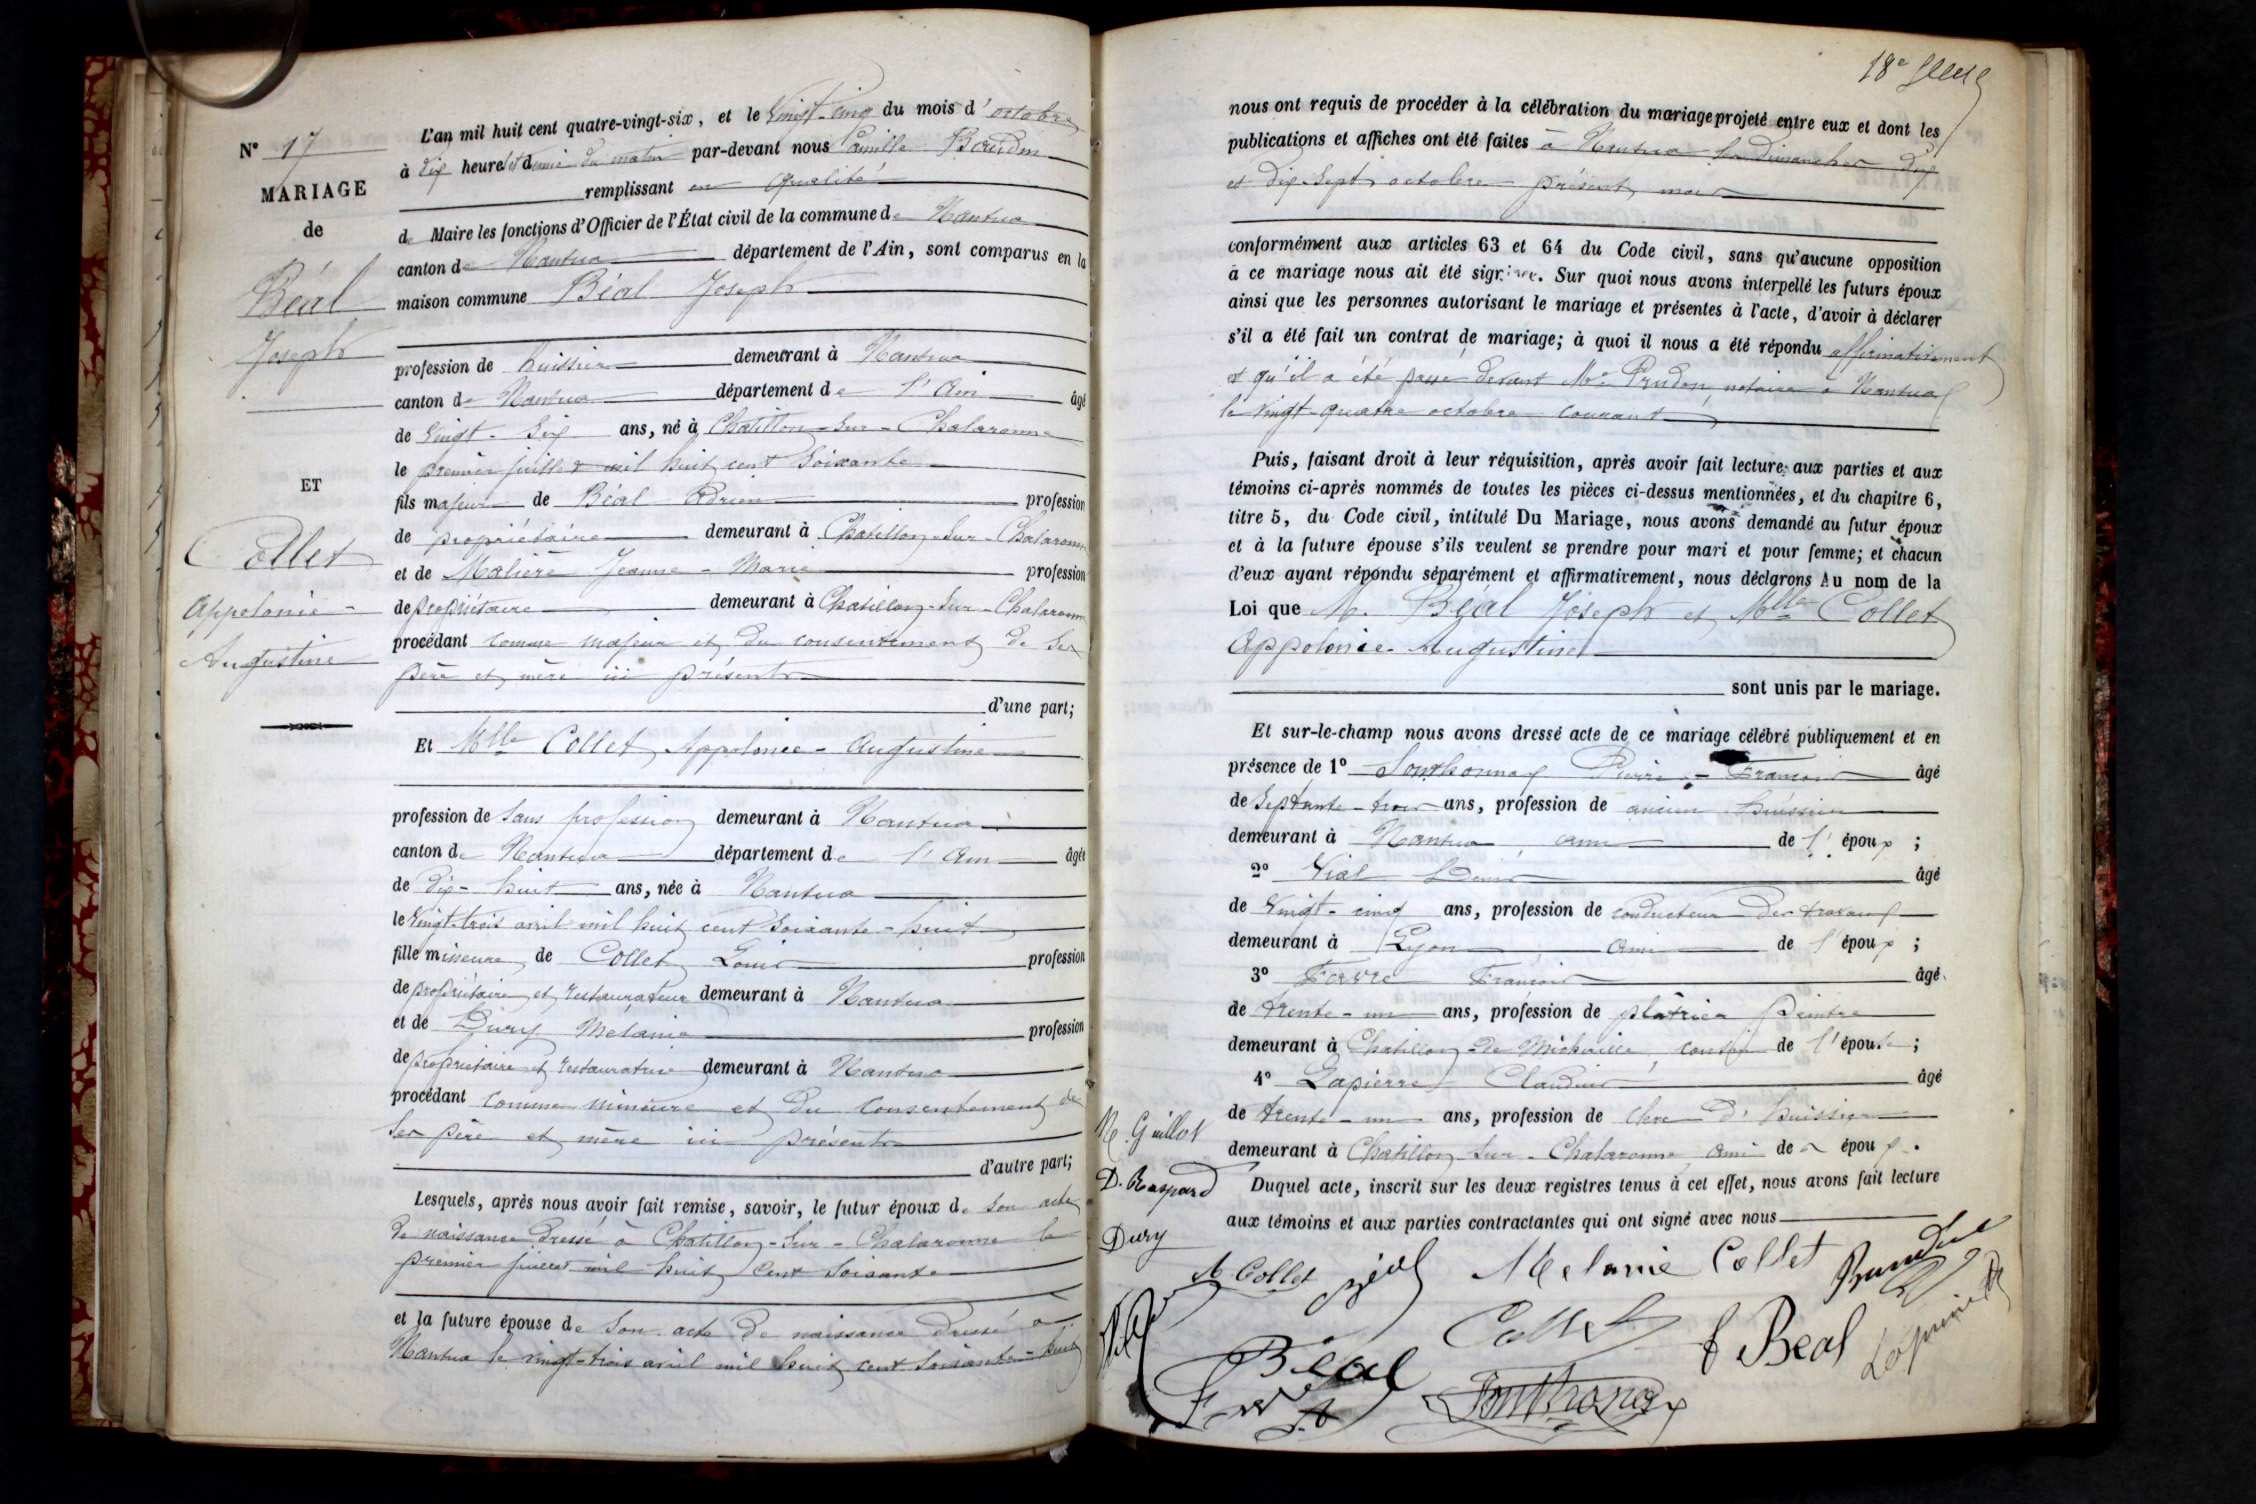 N° 17
MARIAGE
de
Béal
Joseph
ET
Collet
Appolonie-
Augustine
L'an mil huit cent quatre-vingt-six, et le vingt-cinq du mois d'octobre
à dix heure et demie du matin par-devant nous Camille Baudin
remplissant en qualité
de Maire les fonctions d'Officier de l'État civil de la commune de Nantua
canton de Nantua département de l'Ain, sont comparus en la
maison commune Béal Joseph
profession de huissier demeurant à Nantua
canton de Nantua département de l'Ain âgé
de vingt-six ans, né à Chatillon-sur-Chalaronne
le premier juillet mil huit cent soixante
fils majeur de Béal Adrien profession
de propriétaire demeurant à Chatillon-sur-Chalaronne
et de Malière Jeanne-Marie profession
de propriétaire demeurant à Chatillon-sur-Chalaronne
procédant comme majeur et du consentement de ses
père et mère ici présents
d'une part;
Et Mlle Collet Appolonie-Augustine
profession de sans profession demeurant à Nantua
canton de Nantua département de l'Ain âgée
de dix-huit ans, née à Nantua
le vingt-trois avril mil huit cent soixante-huit
fille mineure de Collet Louis profession
de propriétaire et restaurateur demeurant à Nantua
et de Dury Mélanie profession
de propriétaire et restauratrice demeurant à Nantua
procédant comme mineure et du consentement de
ses père et mère ici présents
d'autre part;
Lesquels, après nous avoir fait remise, savoir, le futur époux de son acte
de naissance dressé à Chatillon-sur-Chalaronne le
premier juillet mil huit cent soixante
et la future épouse de son acte de naissance dressé à
Nantua le vingt-trois avril mil huit cent soixante-huit
18e
nous ont requis de procéder à la célébration du mariage projeté entre eux et dont les
publications et affiches ont été faites à Nantua les dimanches dix
et dix-sept octobre présent mois
conformément aux articles 63 et 64 du Code civil, sans qu'aucune opposition
à ce mariage nous ait été signifiée. Sur quoi nous avons interpellé les futurs époux
ainsi que les personnes autorisant le mariage et présentes à l'acte, d'avoir à déclarer
s'il a été fait un contrat de mariage; à quoi il nous a été répondu affirmativement
et qu'il a été passé devant Me Prudon, notaire à Nantua
le vingt-quatre octobre courant
Puis, faisant droit à leur réquisition, après avoir fait lecture aux parties et aux
témoins ci-après nommés de toutes les pièces ci-dessus mentionnées, et du chapitre 6,
titre 5, du Code civil, intitulé Du Mariage, nous avons demandé au futur époux
et à la future épouse s'ils veulent se prendre pour mari et pour femme; et chacun
d'eux ayant répondu séparément et affirmativement, nous déclarons Au nom de la
Loi que M. Béal Joseph et Mlle Collet
Appolonie-Augustine
sont unis par le mariage.
Et sur-le-champ nous avons dressé acte de ce mariage célébré publiquement et en
présence de 1° Southonnax Pierre-François âgé
de septante-trois ans, profession de ancien huissier
demeurant à Nantua, ami de l'époux ;
2° Vial Denis âgé
de vingt-cinq ans, profession de conducteur des travaux
demeurant à Lyon ami de l'époux ;
3° Favre François âgé
de trente-un ans, profession de plâtrier peintre
demeurant à Chatillon-de-Michaille, cousin de l'épouse ;
4° Lapierre Claudius âgé
de trente-un ans, profession de clerc d'huissier
demeurant à Chatillon-sur-Chalaronne, ami de époux.
Duquel acte, inscrit sur les deux registres tenus à cet effet, nous avons fait lecture
aux témoins et aux parties contractantes qui ont signé avec nous
M. Guillot
D. Raspard
Dury
A Collet Béal Melanie Collet
Collet f Béal Lapierre
Béal
Southonnax